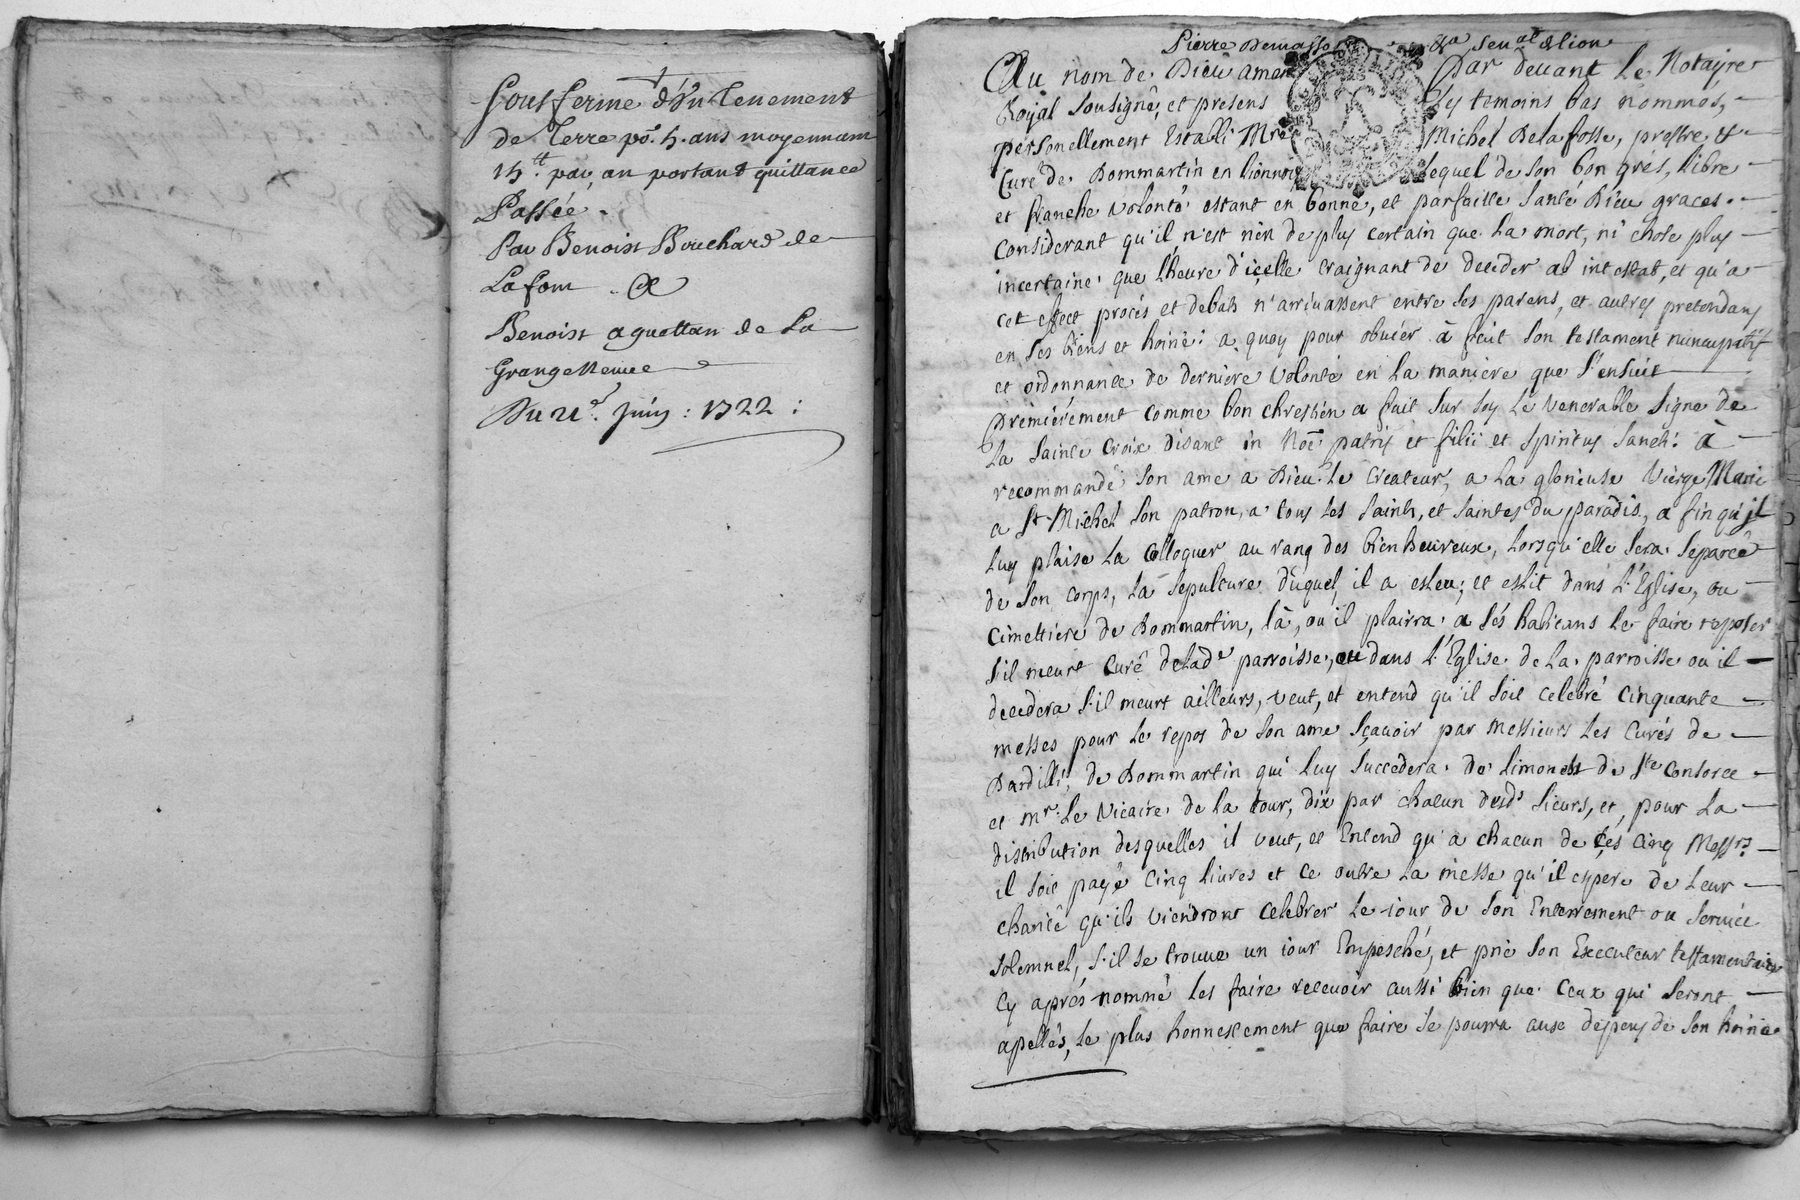 Sousferme d'un tenement
de Terre po.r 5. ans moyennant
15.tt par an portant quittance
Passée
Par Benoist Bouchard de
Lafom a
Benoist aguettan de La
Grange
Du 21.e Juin : 1722 :
Pierre Demasso sen.al de lion
Au nom de Dieu amen Par devant Le Notayre
Royal sousigné, et presens Les temoins bas nommés,
personellement Estably M.re Michel Delafosse, prestre et
Curé de Dommartin en lionnois Lequel de son bon gres, libre
et franche volonté estant en bonne, et parfaitte santé Dieu graces.
Considerant qu'il n'est rien de plus certain que La mort, ni chose plus
incertaine que L'heure d'icelle craignant de deceder ab intestat, et qu'a
cet effect procés et debats n'arrivassent entre ses parens, et autres pretendans
en ses biens et hoirie: a quoy pour obvier à fait son testament nuncupatif
et ordonnance de derniere volonté en La maniere que s'ensuit
Premierement comme bon chrestien a fait sur soy Le venerable signe de
La sainte Croix disant in Noē patris et filii et spiritus sancti. à
recommandé son ame a Dieu Le Createur, a La glorieuse Vierge Marie
a St Michel son patron, a tous les saints, et saintes du paradis, a fin qu'il
luy plaise La colloquer au rang des bienheureux, Lorsqu'elle sera separeé
de son corps, La sepulture duquel, il a esleu, et eslit dans L'Eglise, ou
cimettiere de Dommartin, là, ou il plairra a sés habitans le faire reposer
s'il meurt Curé de lad.e parroisse, ou dans L'Eglise de La parroisse ou il
decedera s'il meurt ailleurs, veut, et entend qu'il soit celebré cinquante
messes pour Le repos de son ame sçavoir par Messieurs Les Curés de
Dardilli, de Dommartin qui luy succedera de limonest de Ste Consorce
et mr. Le vicaire de la tour, dix par chacun desd.s sieurs, et, pour La
distribution desquelles il veut, et Entend qu'a chacun de ces cinq Mess.rs
il soit payé cinq livres et ce outre La messe qu'il espere de Leur
charité qu'ils viendront celebrer Le jour de son Enterrement ou service
solemnel, s'il se trouve un jour Empesché, et prie son Executeur testamentaire
cy aprés nommé les faire recevoir aussi bien que Ceux qui seront
apellés, Le plus honnestement que faire se pourra aux depens de son hoirie